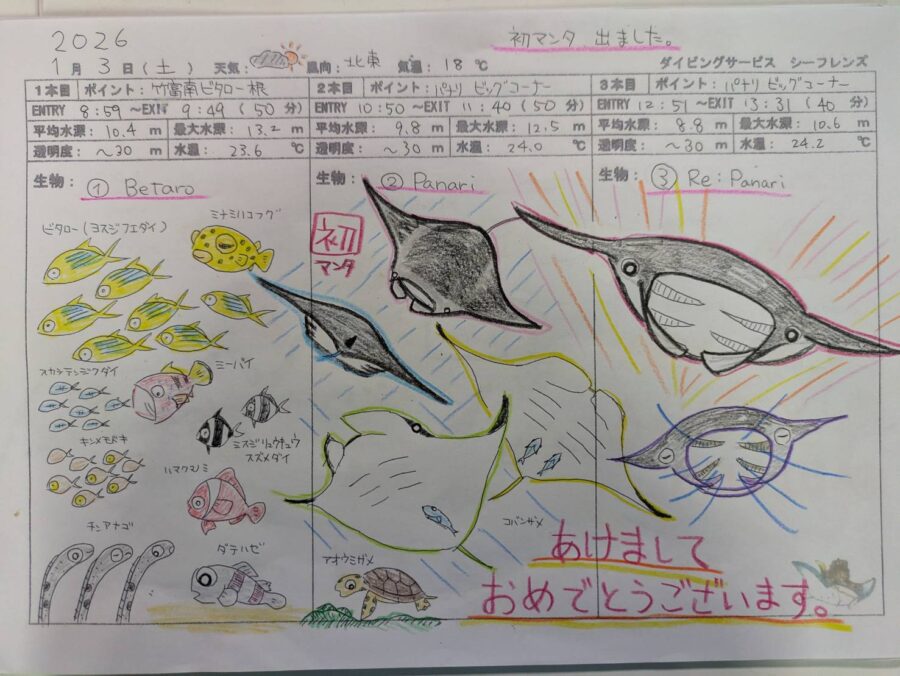 2026
初マンタ 出ました。
1月 3日(土) 天気: 風向: 北東 気温: 18 ℃ ダイビングサービス シーフレンズ
1本目 ポイント: 竹富南ビタロー根
ENTRY 8:59 ～EXIT 9:49 (50分)
平均水深: 10.4 m 最大水深: 13.2 m
透明度: ～30 m 水温: 23.6 ℃
2本目 ポイント: パナリ ビッグコーナー
ENTRY 10:50 ～EXIT 11:40 (50分)
平均水深: 9.8 m 最大水深: 12.5 m
透明度: ～30 m 水温: 24.0 ℃
3本目 ポイント: パナリ ビッグコーナー
ENTRY 12:51 ～EXIT 13:31 (40分)
平均水深: 8.8 m 最大水深: 10.6 m
透明度: ～30 m 水温: 24.2 ℃
生物: ① Betaro
ビタロー(ヨスジフエダイ)
ミナミハコフグ
スカシテンジクダイ
ミーバイ
キンメモドキ
ミスジリュウキュウ
スズメダイ
ハマクマノミ
チンアナゴ
ダテハゼ
生物: ② Panari
初
マンタ
コバンザメ
アオウミガメ
生物: ③ Re:Panari
あけまして
おめでとうございます。